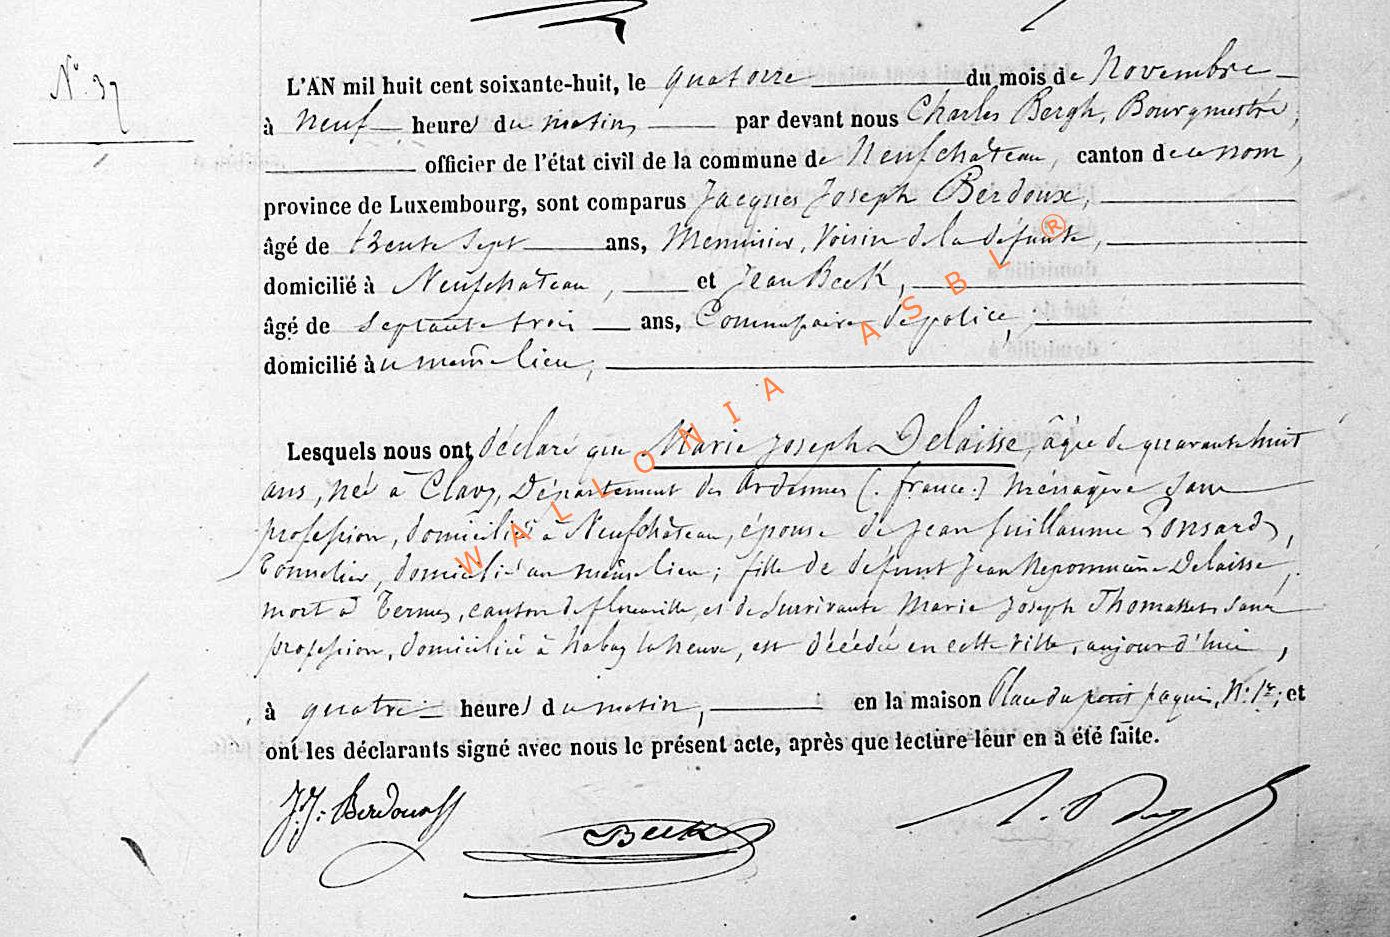 N° 37
L'AN mil huit cent soixante-huit, le quatorze du mois de Novembre
à Neuf heures du matin, par devant nous Charles Bergh, Bourgmestre,
officier de l'état civil de la commune de Neufchateau, canton de ce nom,
province de Luxembourg, sont comparus Jacques Joseph Berdoux,
âgé de trente sept ans, Menuisier, Voisin de la défunte,
domicilié à Neufchateau, et Jean Beck,
âgé de septante trois ans, Commissaire de police,
domicilié au même lieu,
Lesquels nous ont déclaré que Marie Joseph Delaisse, âgée de quarante huit
ans, née à Clavy, Département des Ardennes (. france.) ménagère sans
profession, domiciliée à Neufchâteau, épouse de Jean Guillaume Ponsard,
Tonnelier, domicilié au même lieu; fille de défunt Jean Nepomucène Delaisse,
mort à Termes, canton de florenville, et de survivante Marie Joseph Thomasset sans
profession, domiciliée à habay la neuve, est décédée en cette ville, aujourd'hui,
à quatre heures du matin, en la maison Place du petit paquis, N° 1er; et
ont les déclarants signé avec nous le présent acte, après que lecture leur en a été faite.
J. J. Berdoux
Beck
WALLONIA ASBL ®